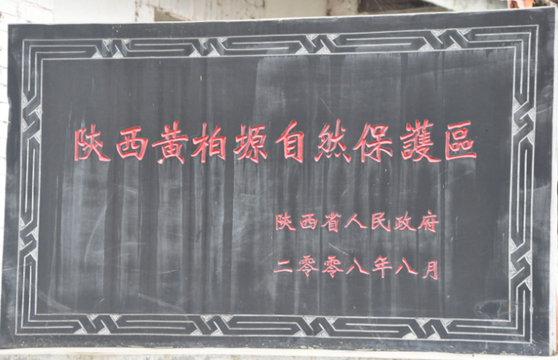 陝西黃柏塬自然保護區
陝西省人民政府
二零零八年八月